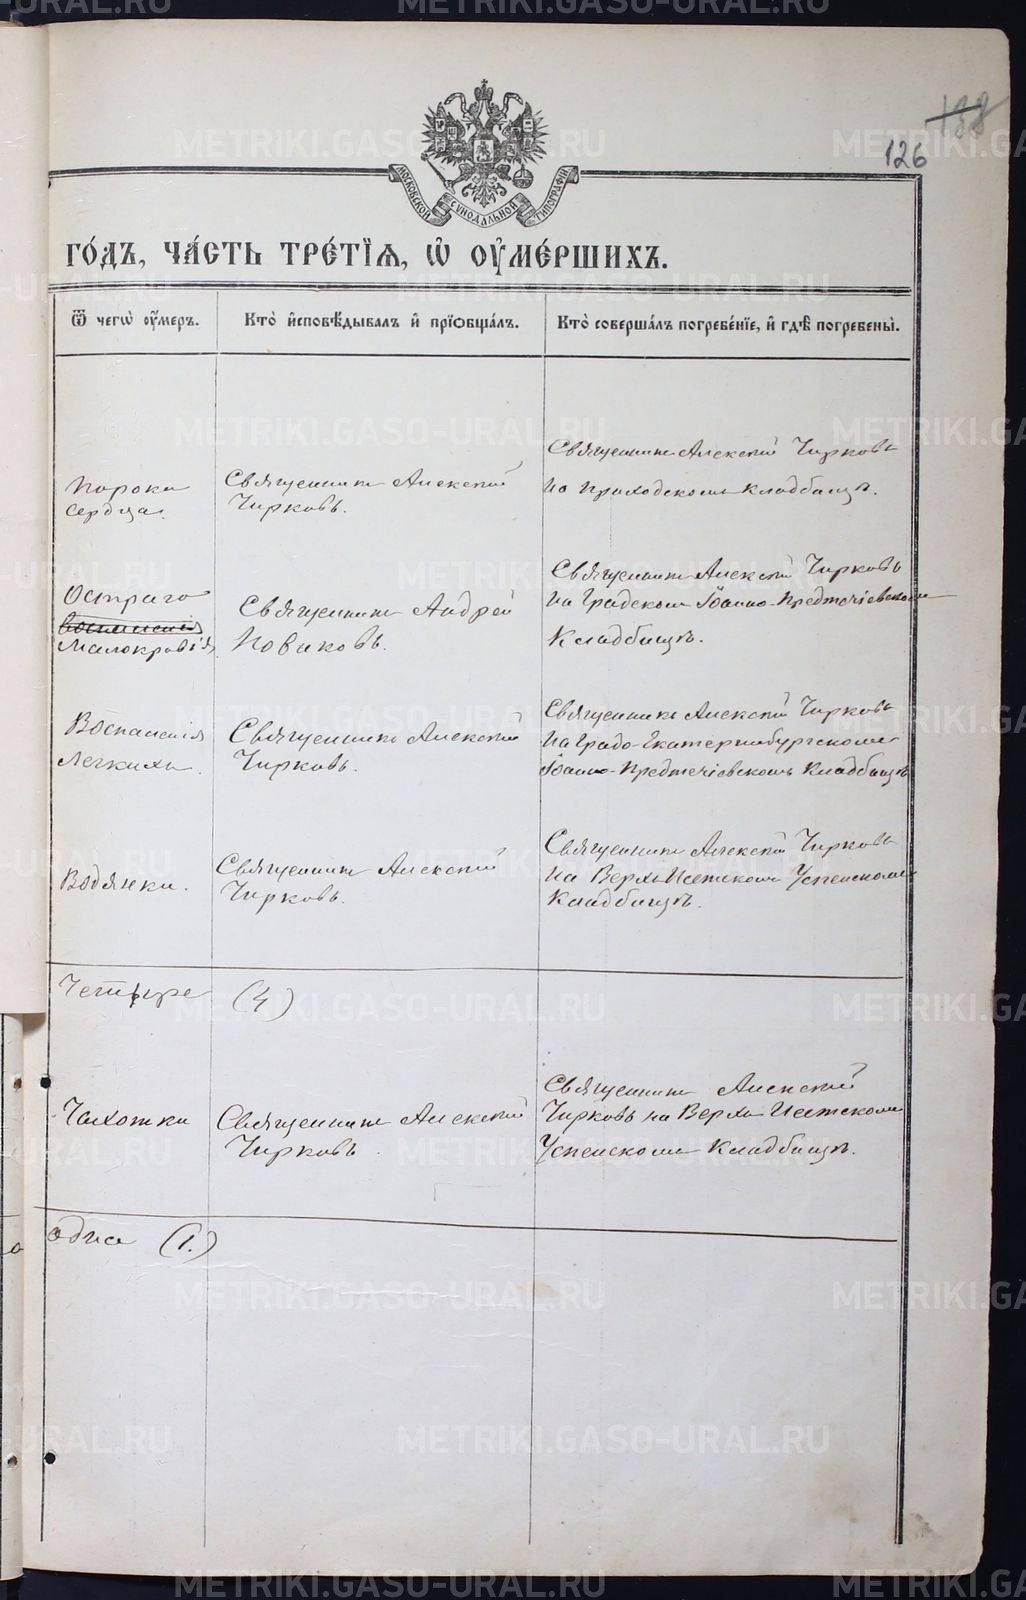 138
126
МОСКОВСКОЙ СѴНОДАЛЬНОЙ ТИПОГРАФІИ
ГО́ДЪ, ЧА́СТЬ ТРЕ́ТІѦ, Ѡ҆ ОУ҆МЕ́РШИХЪ.
Ѿ чегѡ̀ оу҆́меръ.
Кто̀ и҆сповѣ́дывалъ и҆ прїѡбща́лъ.
Кто̀ соверша́лъ погребе́нїе, и҆ гдѣ̀ погребены̀.
Порока
сердца.
Священникъ Алексій
Чирковъ.
Священникъ Алексій Чирковъ
На приходскомъ кладбищѣ.
Остраго
воспаленія
Малокровія.
Священникъ Андрей
Новиковъ.
Священникъ Алексій Чирковъ
На Градскомъ Іоанно-Предтечіевскомъ
Кладбищѣ.
Воспаленія
Легкихъ.
Священникъ Алексій
Чирковъ.
Священникъ Алексій Чирковъ
На Градо-Екатеринбургскомъ
Іоанно-Предтечіевскомъ Кладбищѣ
Водянки.
Священникъ Алексій
Чирковъ.
Священникъ Алексій Чирковъ
На Верхъ-Исетскомъ Успенскомъ
Кладбищѣ.
Четыре (4)
Чахотки
Священникъ Алексій
Чирковъ.
Священникъ Алексій
Чирковъ на Верхъ Исетскомъ
Успенскомъ Кладбищѣ.
одна (1.)
METRIKI.GASO-URAL.RU